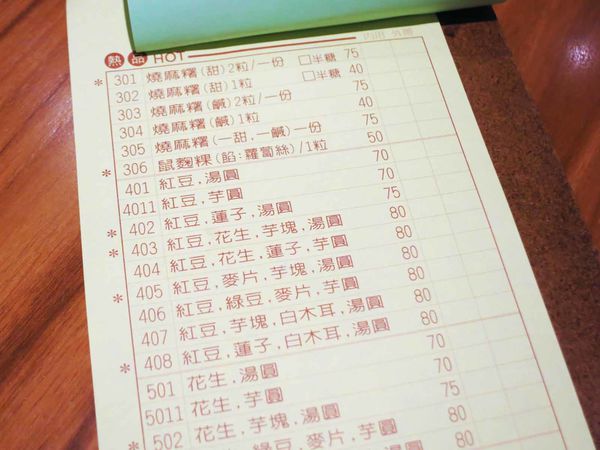 熱品 HOT 內用 外帶
* 301 燒麻糬(甜)2粒/一份 □半糖 75
302 燒麻糬(甜)1粒 □半糖 40
303 燒麻糬(鹹)2粒/一份 75
304 燒麻糬(鹹)1粒 40
305 燒麻糬(一甜,一鹹)一份 75
* 306 鼠麴粿(餡:蘿蔔絲)/1粒 50
401 紅豆,湯圓 70
4011 紅豆,芋圓 70
* 402 紅豆,蓮子,湯圓 75
* 403 紅豆,花生,芋塊,湯圓 80
404 紅豆,花生,蓮子,芋圓 80
* 405 紅豆,麥片,芋塊,湯圓 80
406 紅豆,綠豆,麥片,芋圓 80
407 紅豆,芋塊,白木耳,湯圓 80
* 408 紅豆,蓮子,白木耳,湯圓 80
501 花生,湯圓 70
5011 花生,芋圓 70
* 502 花生,芋塊,湯圓 75
花生,綠豆,麥片,芋圓 80